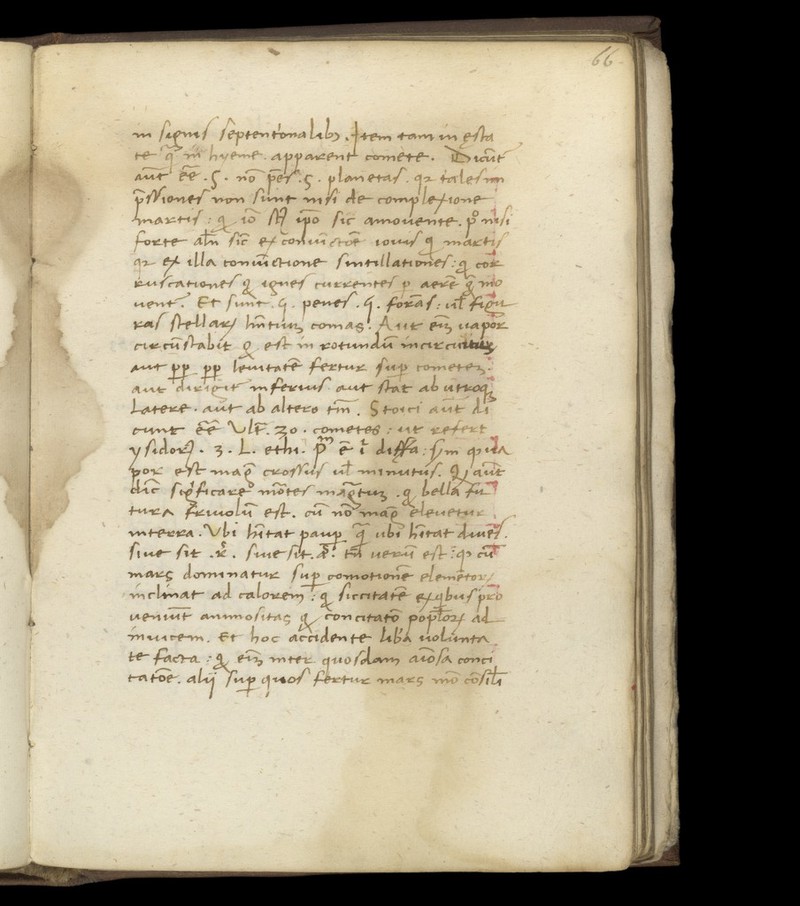 66
in signis septentrionalibꝫ. Item tam in esta
te q̃ in hyeme apparent comete. Dicũt
aũt eẽ .5. nõ p̃es .5. planetas. qꝛ tales im
p̃ssiones non sunt nisi de complexione
martis: ipõ sic amouente. nisi
forte sic ex coniũctiõe iouis martis
qꝛ ex illa coniunctione sintillationes: cor
ruscationes ignes currentes p aerẽ mo
uent̃. Et sunt .q. penes .q. formas: ul̃ figu
ras stellaꝝ comas. Aut eĩ uapor
circũstabit est in rotundũ incircuitu
aut leuitatẽ fertur sup cometem.
aut dirigit̃ inferius aut stat ab utroqꝫ
latere. aut ab altero tm̃. Stoici aũt di
cunt eẽ Ult̃. 30. cometes: ut refert
ysidoꝝ. 3. L. ethi. diff̃a: ua
por est crossus ul̃ minutus. aũt
dic̃ significare mõtes bella fu
tura friuolũ est. cũ nõ eleuetur
interra. Ubi hĩtat paup q̃ ubi hĩtat diues.
siue sit .r̃. siue sit. tñ uerũ est: cũ
mars dominatur sup comotionẽ elementoꝝ
inclinat ad calorem: siccitatẽ exqbus pro
ueniũt animositas concitatõ popl̃oꝝ ad
inuicem. Et hoc accidente lib̃a uolunta
te facta: eĩ inter quosdam aiosa conci
tatõe. alij sup quos fertur mars cõsili